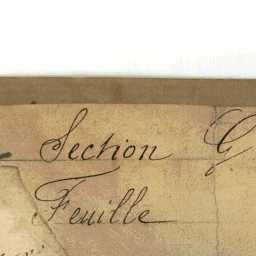 Section G
Feuille